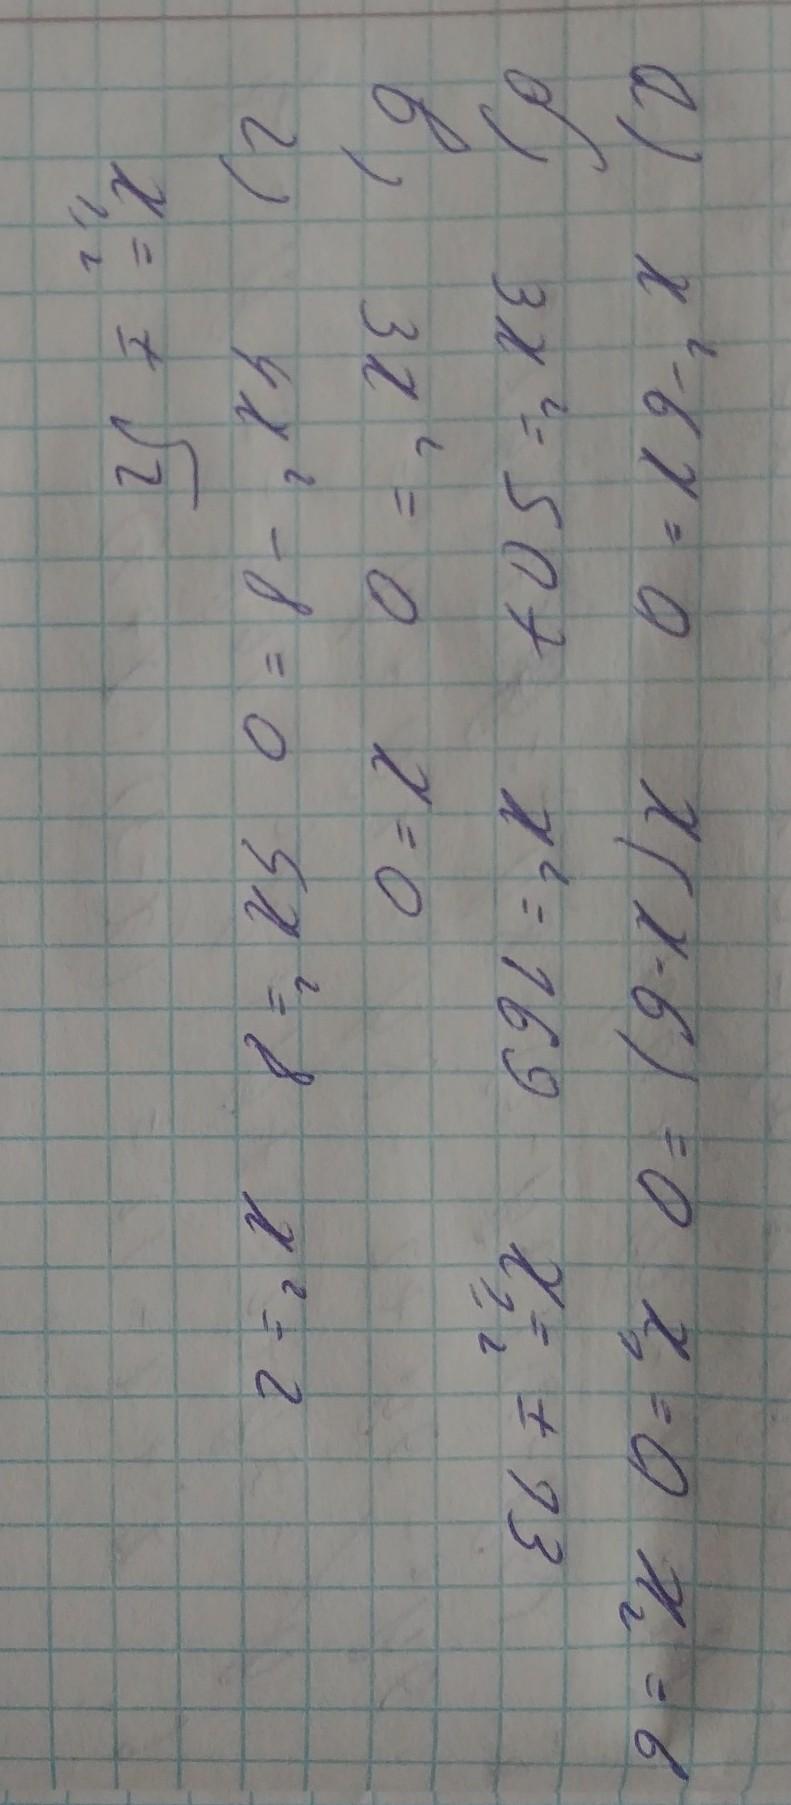 а) x² - 6x = 0 x(x-6) = 0 x₁ = 0 x₂ = 6
б) 3x² = 507 x² = 169 x₁,₂ = ± 13
в) 3x² = 0 x = 0
г) 4x² - 8 = 0 4x² = 8 x² = 2
x₁,₂ = ± √2